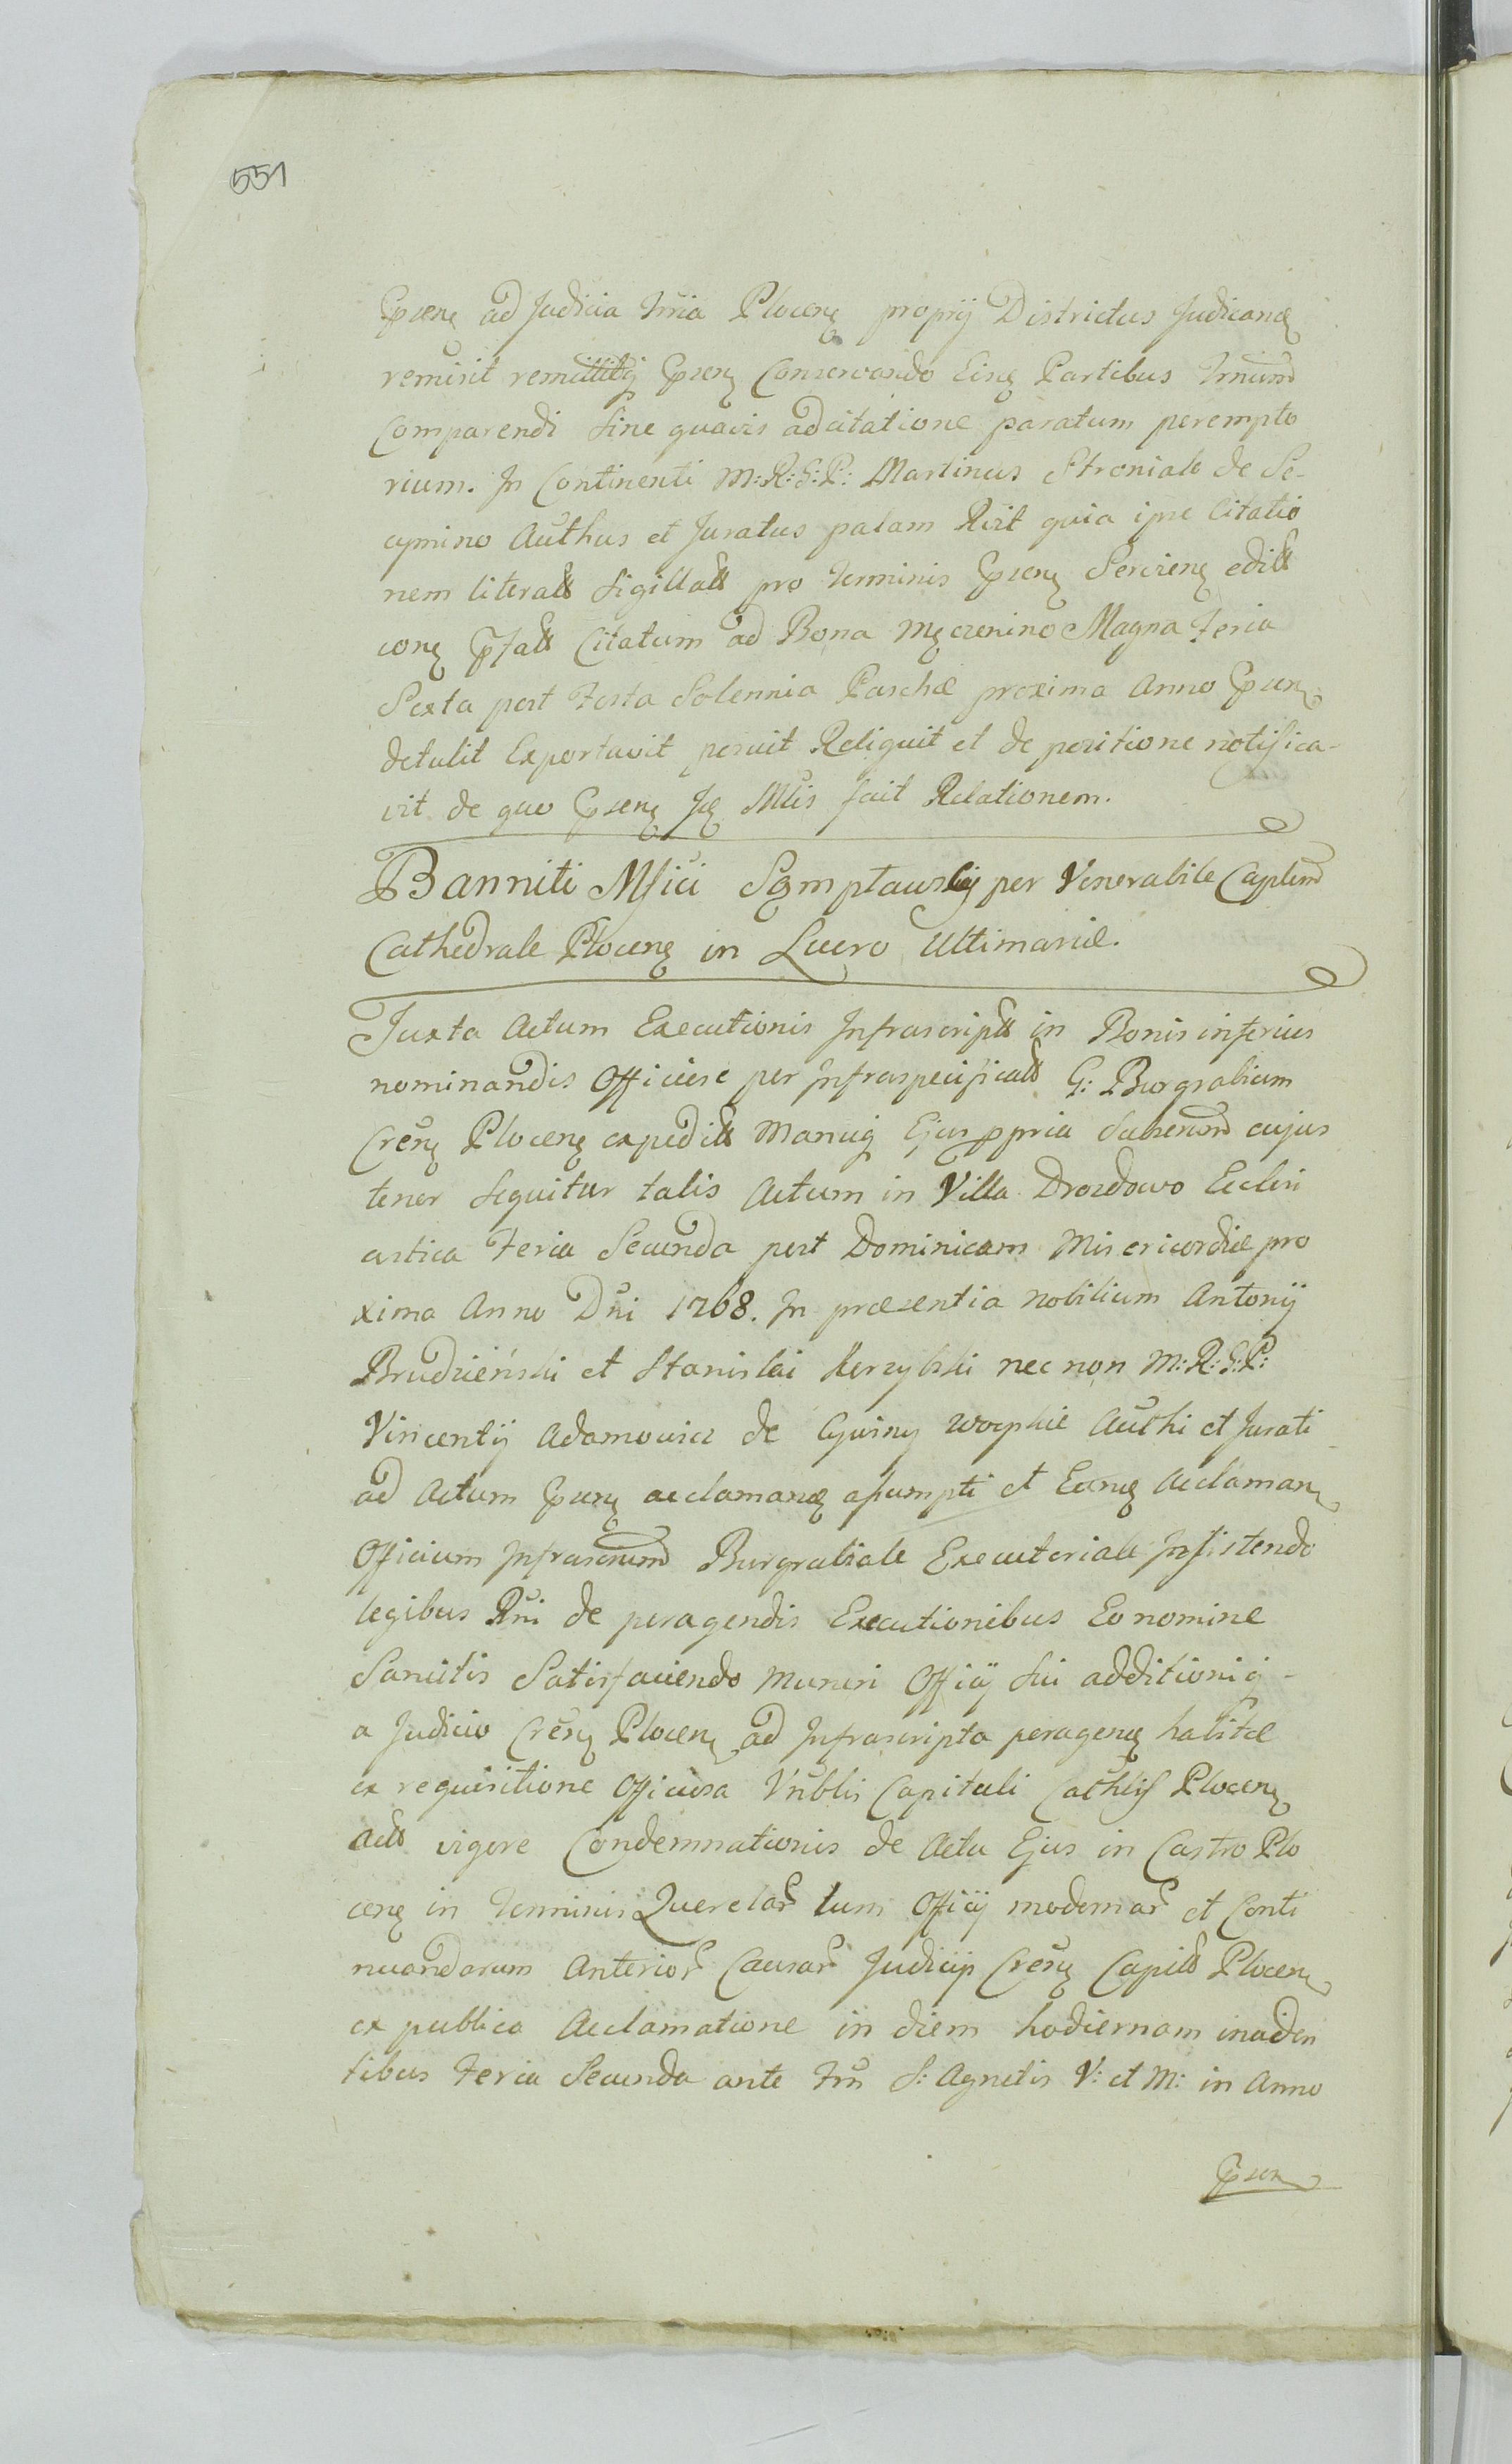 551
Pnseng ad Judicia Trria Ploceng proprij Districtus Judicand
remisit remittitq Pnseng Conservando Eisq Partibus Trnum
Comparendi Sine quavis adcitatione paratum perempto
rium. In Continenti M:R:G:P: Martinus Stroniak de Se-
cymino Authus et Juratus palam Rcit quia ipse Citatio
nem literalt Sigillalt pro Terminis Pnseng Servieng edilt
cong Pfalt Citatum ad Bona Męczenino Magna Feria
Sexta post Festa Solennia Paschæ proxima Anno Pnseng
detulit Exportavit posuit Reliquit et de positione notifica-
vit de quo Pnseng fecit Relationem.
Banniti Mfici Sgmptawskij per Venerabile Caplum
Cathedrale Ploceng in Lucro Ultimariæ.
Juxta Actum Executionis Infrascriplt in Bonis inferius
nominandis Officiose per Infraspecificalt G: Burgrabium
Crẽsn Ploceng expedilt Manuq Ejus ppria Subscrum cujus
tenor Sequitur talis Actum in Villa Drozdowo Ecclesi
astica Feria Secunda post Dominicam Misericordiæ pro
xima Anno Dni 1768. In præsentia Nobilium Antonij
Brudzieński et Stanislai Kerzybski nec non M:R:G:P:
Vincentij Adamowicz de Authi et Jurati
ad Actum Pnseng acclamand assumpti et Eornq Acclamang
Officium Infrascrnum Burgrabiale Executoriale Insistendo
legibus Rni de peragendis Executionibus Eo nomine
Sancitis Satisfaciendo Muneri Officij Sui additioniq-
a Judicio Crẽsn Ploceng ad Infrascripta perageng habitæ
ex requisitione Officiosa Vnblis Capituli Cathlis Ploceng
aclt vigore Condemnationis de Actu Ejus in Castro Plo
ceng in Terminis Querelar tum Officij modernar et Conti
nuandarum Anterior Causar Judicijs Crẽsn Capilt Ploceng
ex publica Acclamatione in diem hodiernam inciden
tibus Feria Secunda ante Fm S: Agnetis V: et M: in Anno
Pnseng